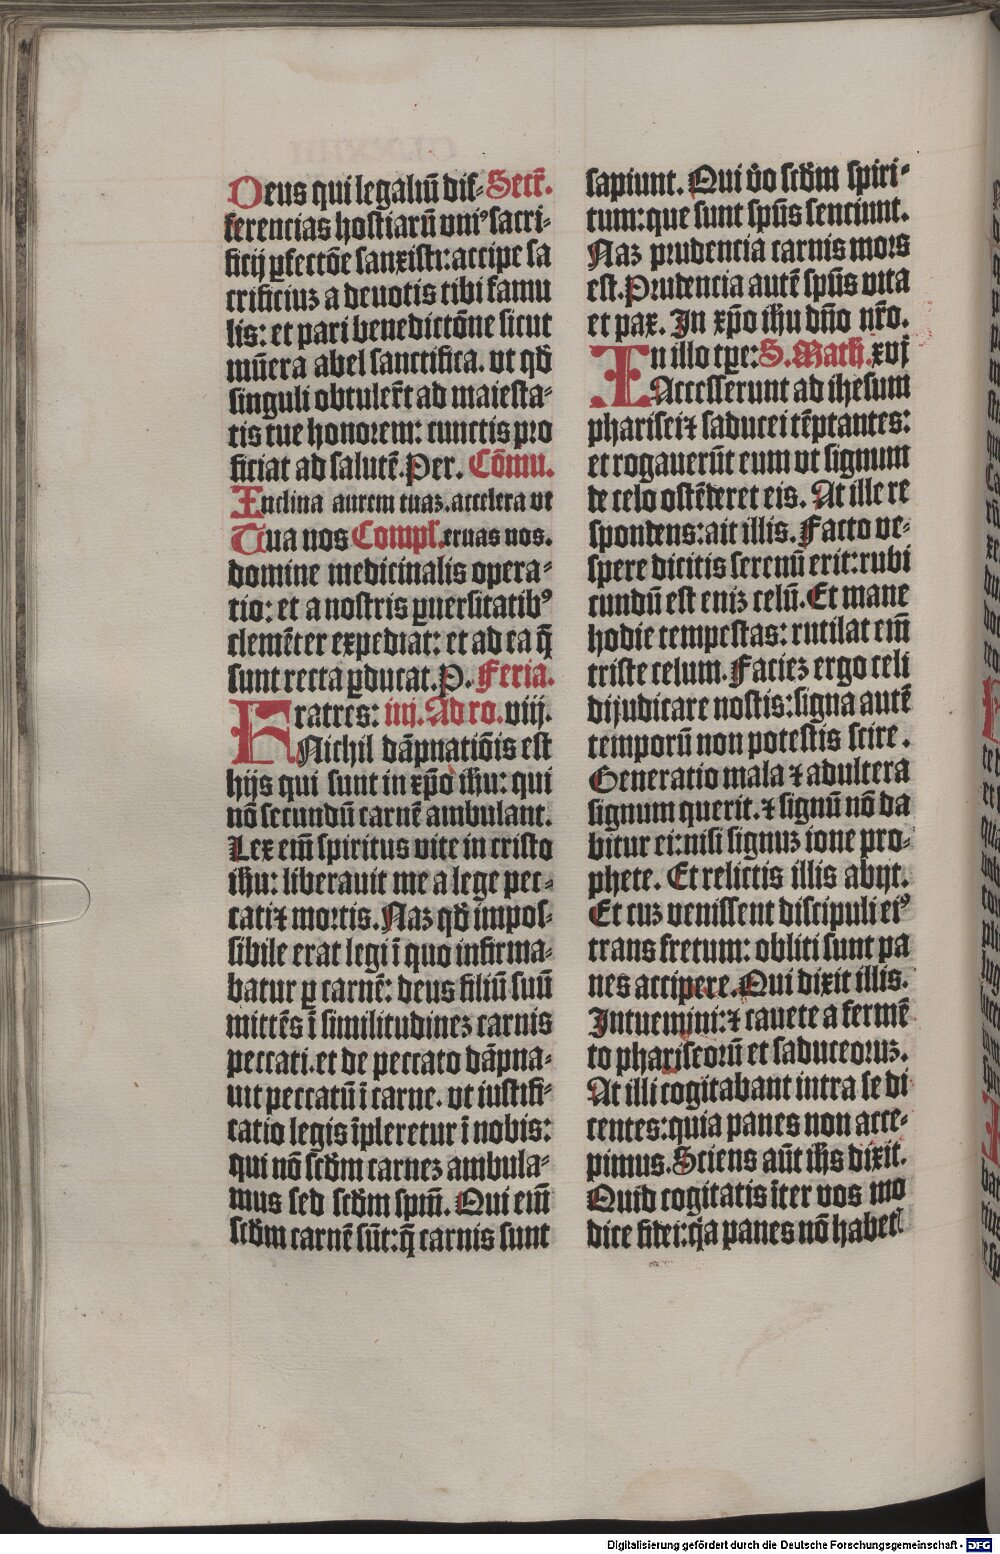 Deus qui legaliū dif- Secr̄.
ferencias hostiarū vniꝰ sacri-
ficij ꝑfectōe sanxisti: accipe sa
crificiuꝫ a deuotis tibi famu
lis: et pari benedictōne sicut
mūera abel sanctifica. vt qđ
singuli obtuler̄t ad maiesta-
tis tue honorem: cunctis pro
ficiat ad salutē. Per. Cōmu.
Inclina aurem tuaꝫ. accelera vt
Tua nos Compl̄. eruas nos.
domine medicinalis opera-
tio: et a nostris ꝑuersitatibꝰ
clemēter expediat: et ad ea q̄
sunt recta ꝑducat. P. Feria.
Fratres: iiij. Ad ro. viij.
Nichil dāpnatiōis est
hijs qui sunt in xp̄o ih̄u: qui
nō secundū carnē ambulant.
Lex em̄ spiritus vite in cristo
ih̄u: liberauit me a lege pec-
cati ⁊ mortis. Naꝫ qđ impos-
sibile erat legi ī quo infirma-
batur ꝑ carnē: deus filiū suū
mittēs ī similitudineꝫ carnis
peccati. et de peccato dāpna-
uit peccatū ī carne. vt iustifi-
catio legis īpleretur ī nobis:
qui nō scđm carneꝫ ambula-
mus sed scđm spm̄. Qui em̄
scđm carnē sūt: q̄ carnis sunt
sapiunt. Qui v̄o scđm spiri-
tum: que sunt spūs senciunt.
Naꝫ prudencia carnis mors
est. Prudencia autē spūs vita
et pax. In xp̄o ih̄u dn̄o nr̄o.
In illo tꝑe: S. Math. xvj
Accesserunt ad ihesum
pharisei ⁊ saducei tēptantes:
et rogauerūt eum vt signum
de celo ostēderet eis. At ille re
spondens: ait illis. Facto ve-
spere dicitis serenū erit: rubi
cundū est eniꝫ celū. Et mane
hodie tempestas: rutilat em̄
triste celum. Facieꝫ ergo celi
dijudicare nostis: signa autē
temporū non potestis scire.
Generatio mala ⁊ adultera
signum querit. ⁊ signū nō da
bitur ei: nisi signuꝫ ione pro-
phete. Et relictis illis abijt.
Et cuꝫ venissent discipuli eiꝰ
trans fretum: obliti sunt pa
nes accipere. Qui dixit illis.
Intuemini: ⁊ cauete a fermē
to phariseorū et saduceoruꝫ.
At illi cogitabant intra se di
centes: quia panes non acce-
pimus. Sciens aūt ih̄s dixit.
Quid cogitatis īter vos mo
dice fidei: q̄a panes nō habet
Digitalisierung gefördert durch die Deutsche Forschungsgemeinschaft - DFG